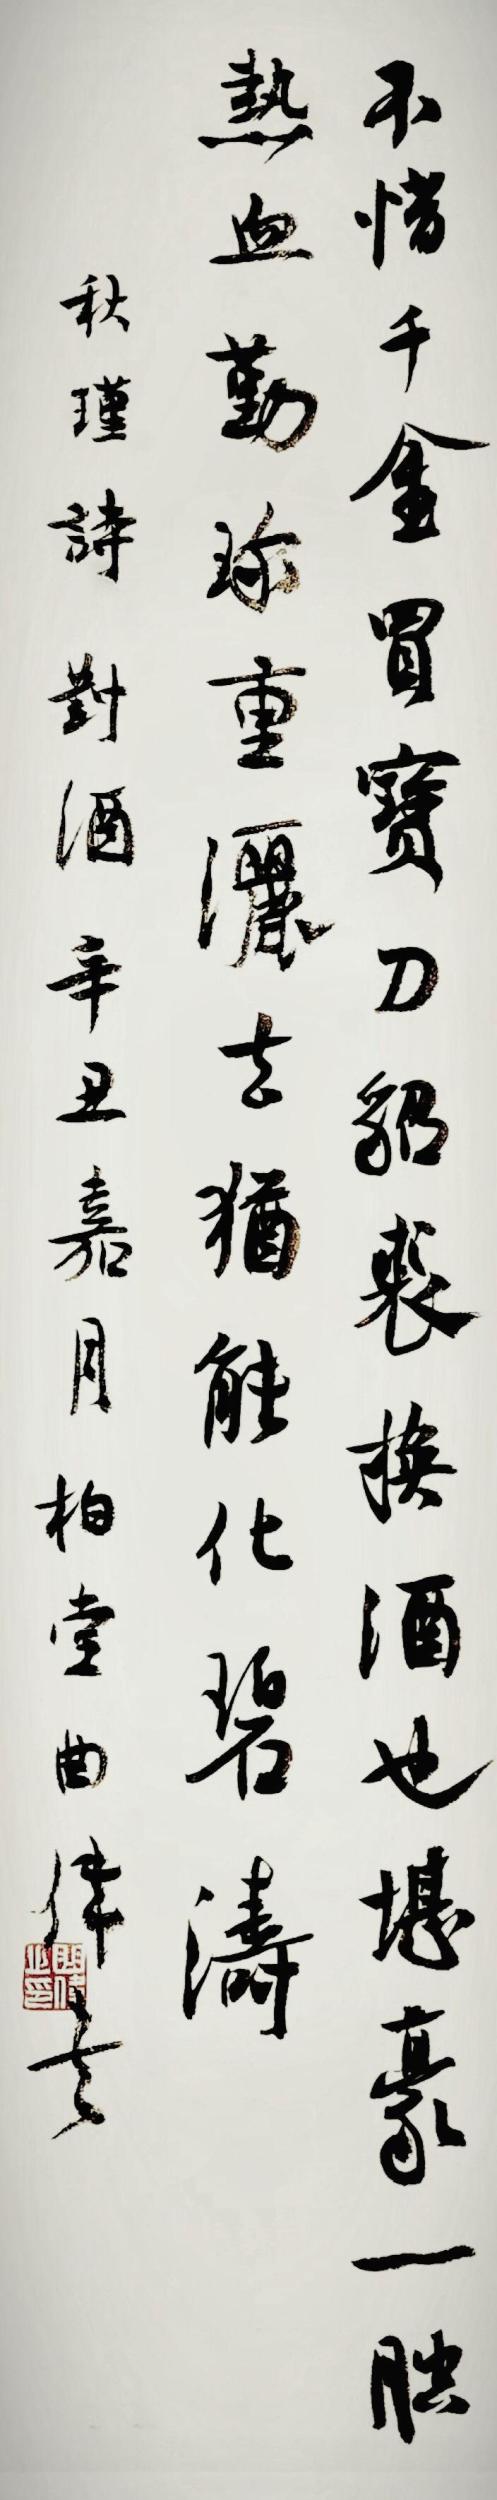 不惜千金買寶刀貂裘換酒也堪豪一腔
熱血勤珍重灑去猶能化碧濤
秋瑾詩對酒辛丑嘉月柏堂曲偉